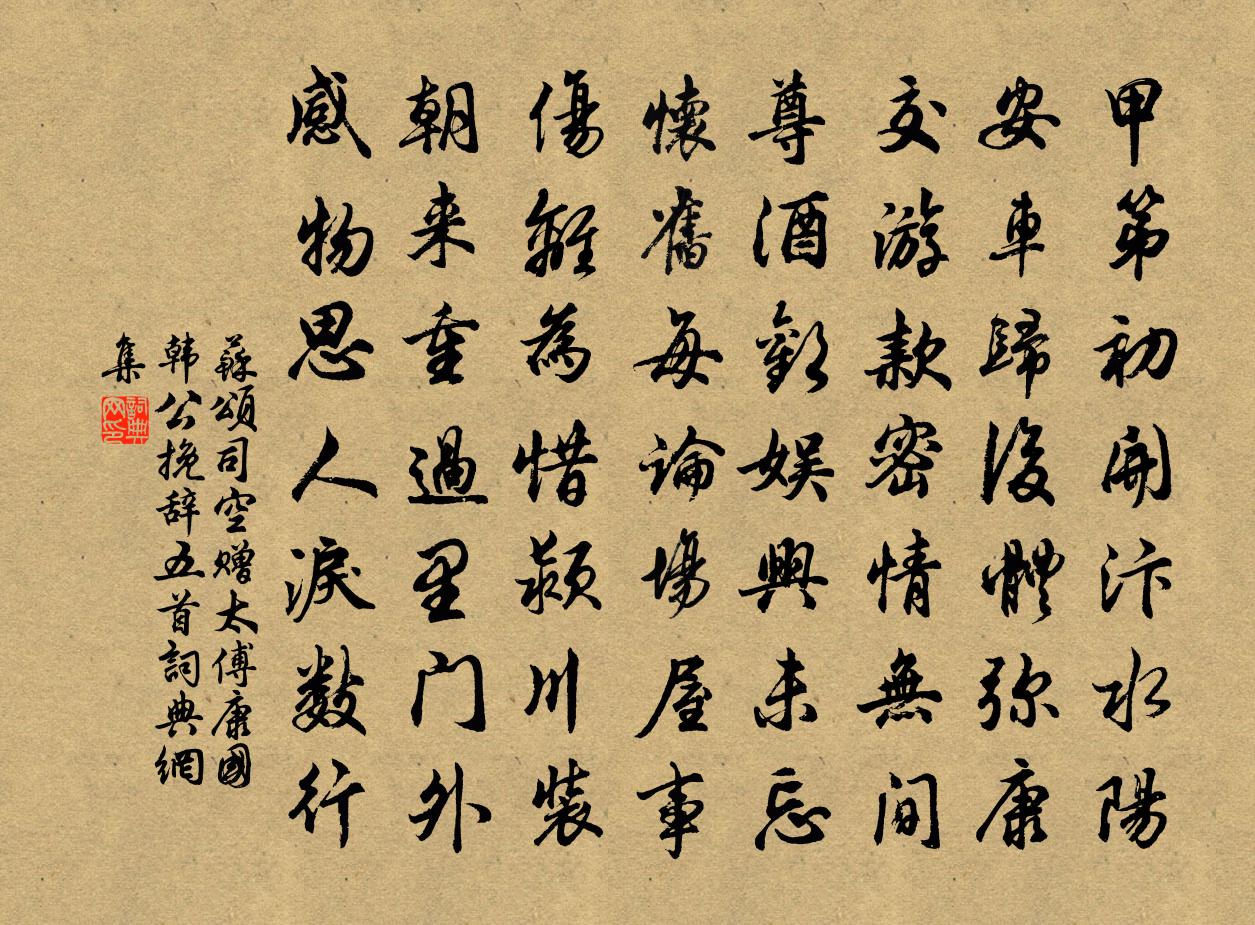 甲第初開汴水陽
安車歸後體弥康
交游款密情無间
尊酒歡娱興未忘
懷舊每論場屋事
傷離為惜颍川裝
朝来重過里门外
感物思人淚數行
蘇頌司空赠太傅康國
韩公挽辞五首詞典網
集
詞典
网印